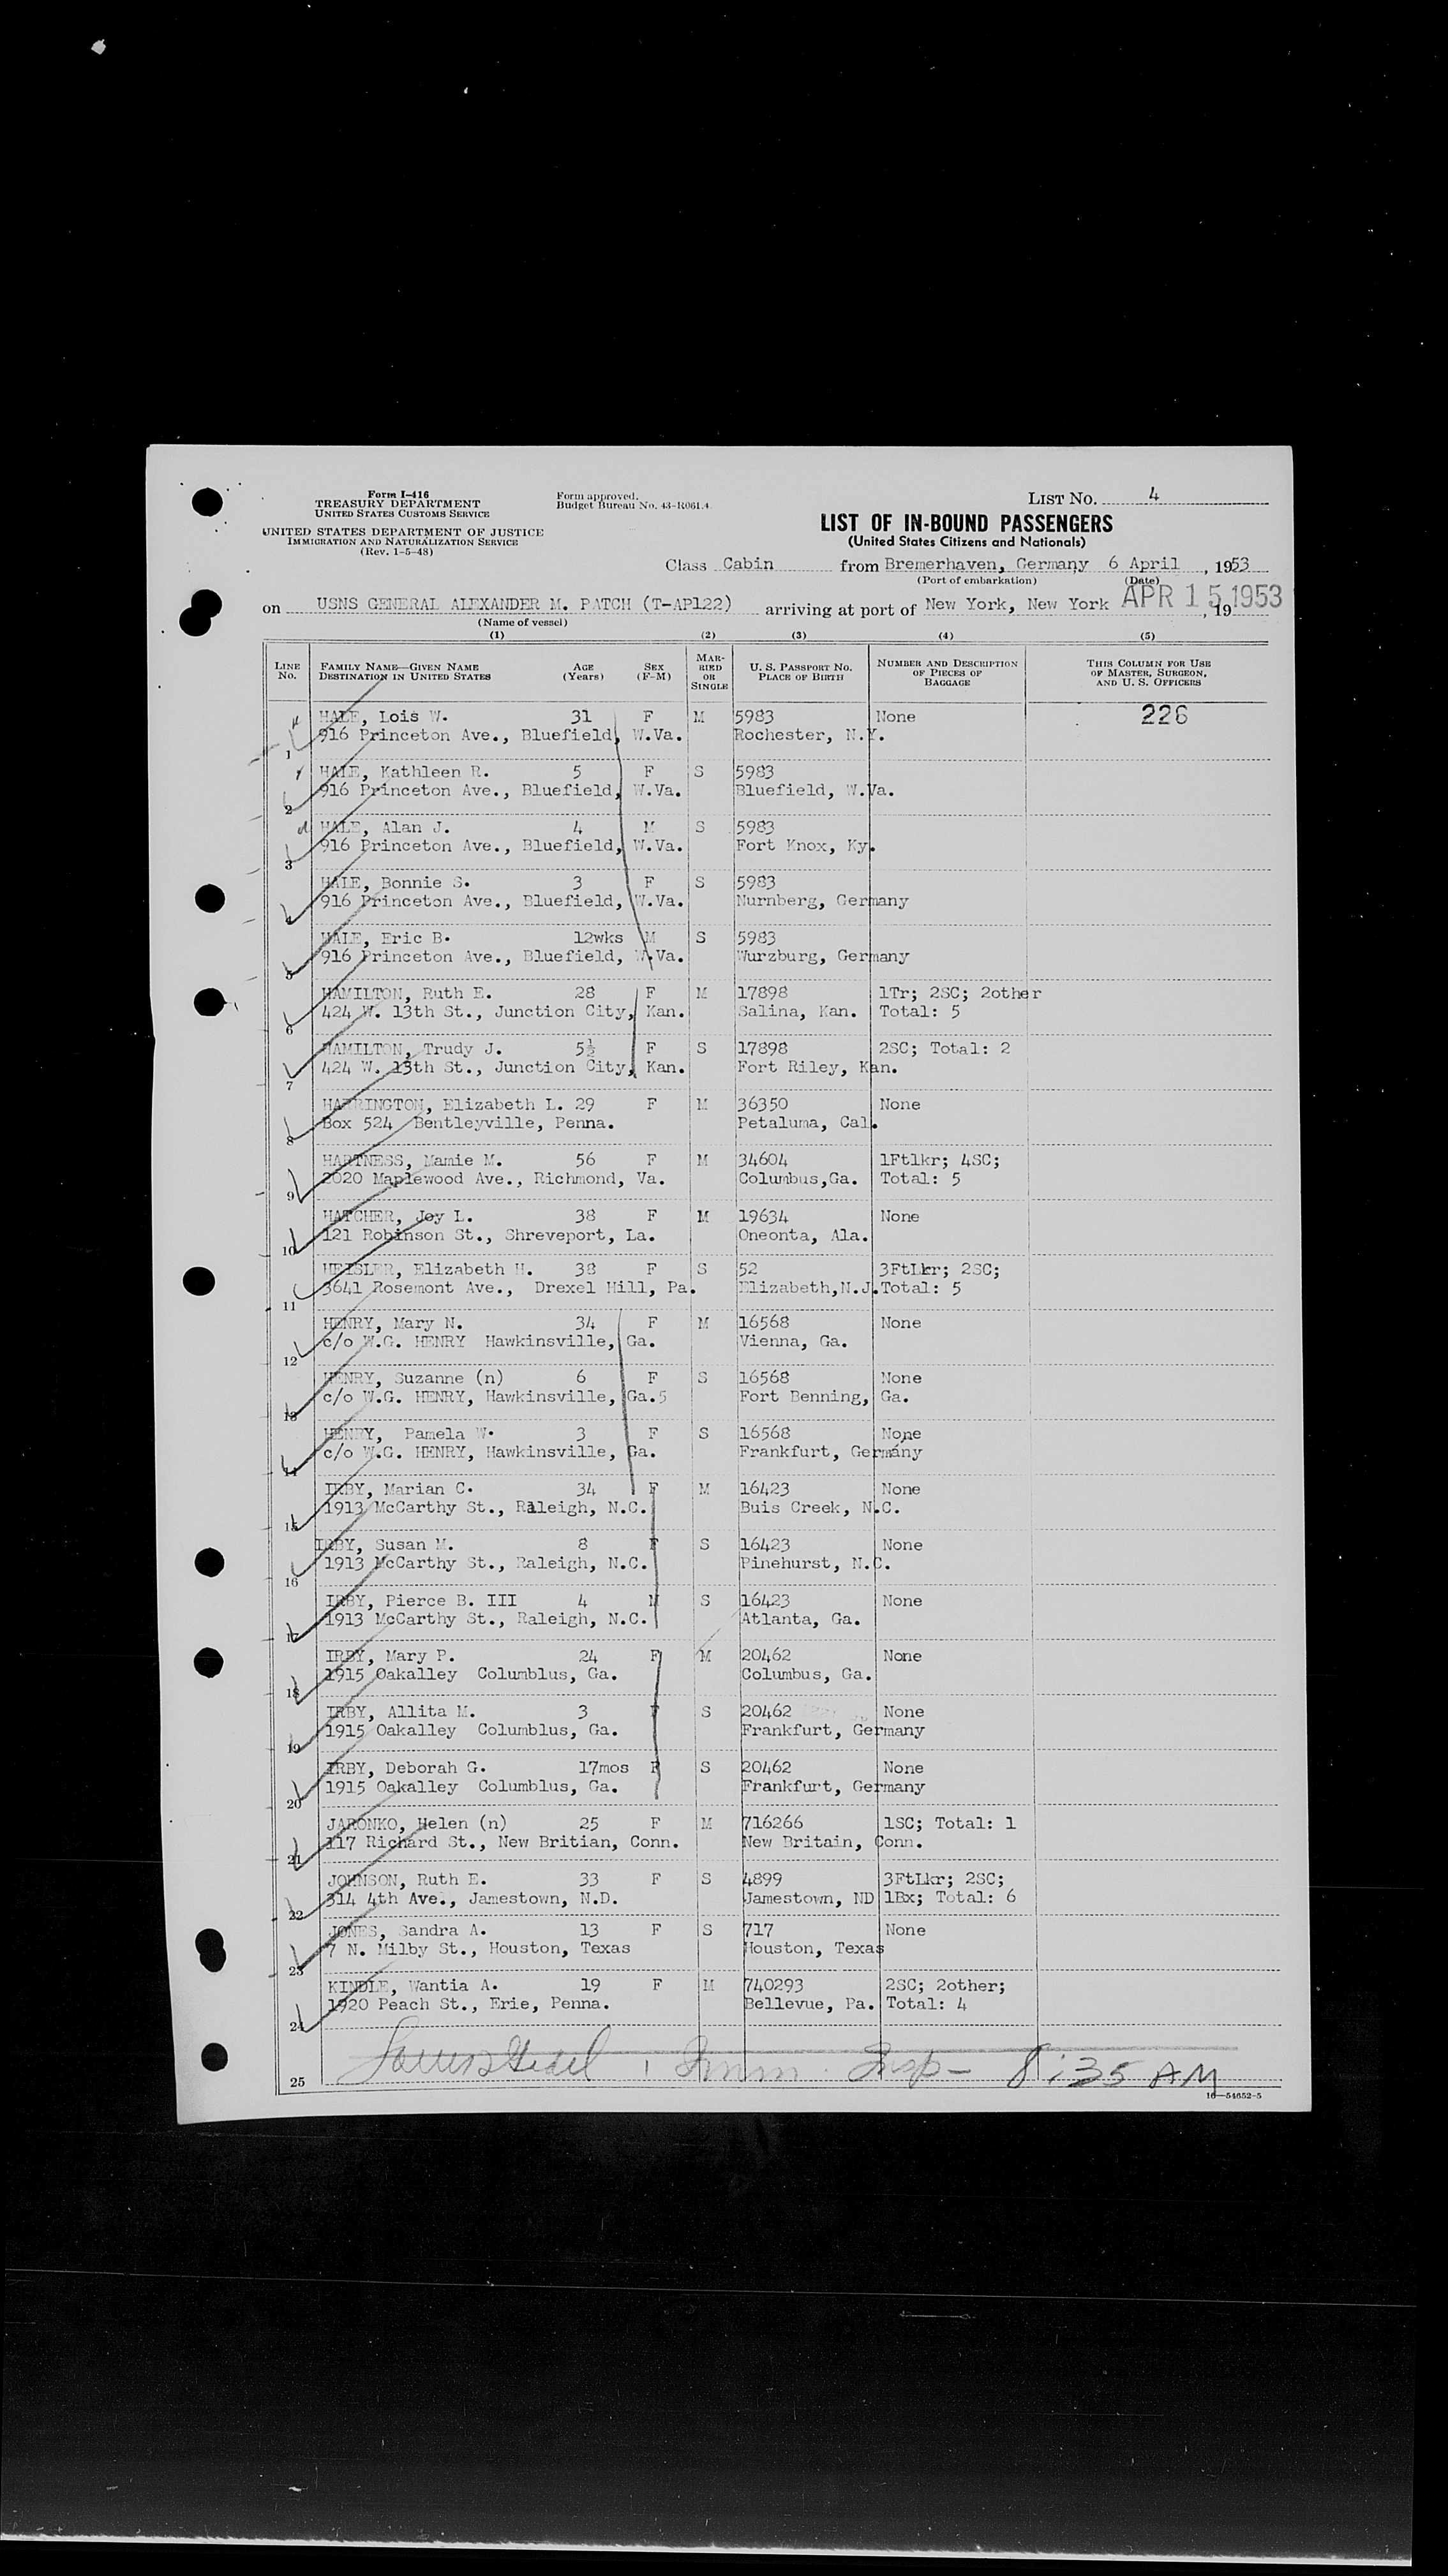 Form I-416
TREASURY DEPARTMENT
UNITED STATES CUSTOMS SERVICE
UNITED STATES DEPARTMENT OF JUSTICE
IMMIGRATION AND NATURALIZATION SERVICE
(Rev. 1-5-48)
Form approved.
Budget Bureau No. 43-R061.4.
LIST No. 4
LIST OF IN-BOUND PASSENGERS
(United States Citizens and Nationals)
Class Cabin from Bremerhaven, Germany 6 April, 1953
(Port of embarkation) (Date)
on USNS GENERAL ALEXANDER M. PATCH (T-AP122) arriving at port of New York, New York APR 15 1953, 19
(Name of vessel)
(1) (2) (3) (4) (5)
LINE No. FAMILY NAME—GIVEN NAME DESTINATION IN UNITED STATES AGE (Years) SEX (F-M) MARRIED OR SINGLE U. S. PASSPORT No. PLACE OF BIRTH NUMBER AND DESCRIPTION OF PIECES OF BAGGAGE THIS COLUMN FOR USE OF MASTER, SURGEON, AND U. S. OFFICERS
HALE, Lois W. 31 F M 5983 None 226
1 916 Princeton Ave., Bluefield, W.Va. Rochester, N.Y.
HALE, Kathleen R. 5 F S 5983
2 916 Princeton Ave., Bluefield, W.Va. Bluefield, W.Va.
HALE, Alan J. 4 M S 5983
3 916 Princeton Ave., Bluefield, W.Va. Fort Knox, Ky.
HALE, Bonnie S. 3 F S 5983
4 916 Princeton Ave., Bluefield, W.Va. Nurnberg, Germany
HALE, Eric B. 12wks M S 5983
5 916 Princeton Ave., Bluefield, W.Va. Wurzburg, Germany
HAMILTON, Ruth E. 28 F M 17898 1Tr; 2SC; 2other
6 424 W. 13th St., Junction City, Kan. Salina, Kan. Total: 5
HAMILTON, Trudy J. 5½ F S 17898 2SC; Total: 2
7 424 W. 13th St., Junction City, Kan. Fort Riley, Kan.
HARRINGTON, Elizabeth L. 29 F M 36350 None
8 Box 524 Bentleyville, Penna. Petaluma, Cal.
HARTNESS, Mamie M. 56 F M 34604 1Ftlkr; 4SC;
9 2020 Maplewood Ave., Richmond, Va. Columbus,Ga. Total: 5
HATCHER, Joy L. 38 F M 19634 None
10 121 Robinson St., Shreveport, La. Oneonta, Ala.
HEISLER, Elizabeth H. 38 F S 52 3FtLkr; 2SC;
11 3641 Rosemont Ave., Drexel Hill, Pa. Elizabeth,N.J. Total: 5
HENRY, Mary N. 34 F M 16568 None
12 c/o W.G. HENRY Hawkinsville, Ga. Vienna, Ga.
HENRY, Suzanne (n) 6 F S 16568 None
13 c/o W.G. HENRY, Hawkinsville, Ga.5 Fort Benning, Ga.
HENRY, Pamela W. 3 F S 16568 None
14 c/o W.G. HENRY, Hawkinsville, Ga. Frankfurt, Germany
IRBY, Marian C. 34 F M 16423 None
15 1913 McCarthy St., Raleigh, N.C. Buis Creek, N.C.
IRBY, Susan M. 8 F S 16423 None
16 1913 McCarthy St., Raleigh, N.C. Pinehurst, N.C.
IRBY, Pierce B. III 4 M S 16423 None
17 1913 McCarthy St., Raleigh, N.C. Atlanta, Ga.
IRBY, Mary P. 24 F M 20462 None
18 1915 Oakalley Columblus, Ga. Columbus, Ga.
IRBY, Allita M. 3 F S 20462 None
19 1915 Oakalley Columblus, Ga. Frankfurt, Germany
IRBY, Deborah G. 17mos F S 20462 None
20 1915 Oakalley Columblus, Ga. Frankfurt, Germany
JARONKO, Helen (n) 25 F M 716266 1SC; Total: 1
21 117 Richard St., New Britian, Conn. New Britain, Conn.
JOHNSON, Ruth E. 33 F S 4899 3FtLkr; 2SC;
22 314 4th Ave., Jamestown, N.D. Jamestown, ND 1Bx; Total: 6
JONES, Sandra A. 13 F S 717 None
23 7 N. Milby St., Houston, Texas Houston, Texas
KINDLE, Wantia A. 19 F M 740293 2SC; 2other;
24 1920 Peach St., Erie, Penna. Bellevue, Pa. Total: 4
25 Imm. Insp- 8:35 AM
16—54652-5